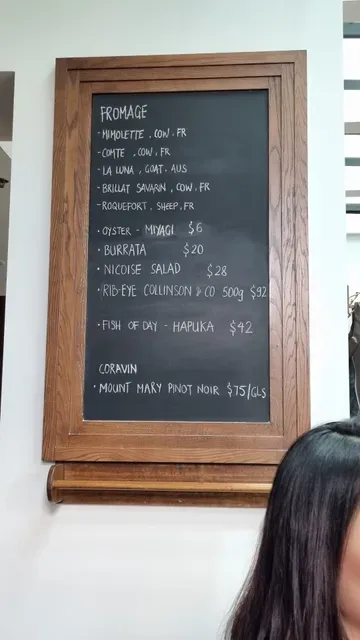 FROMAGE
- MIMOLETTE, COW, FR
- COMTE, COW, FR
- LA LUNA, GOAT, AUS
- BRILLAT SAVARIN, COW, FR
- ROQUEFORT, SHEEP, FR
• OYSTER - MIYAGI $6
• BURRATA $20
• NICOISE SALAD $28
• RIB-EYE COLLINSON & CO 500g $92
• FISH OF DAY - HAPUKA $42
CORAVIN
• MOUNT MARY PINOT NOIR $75/GLS